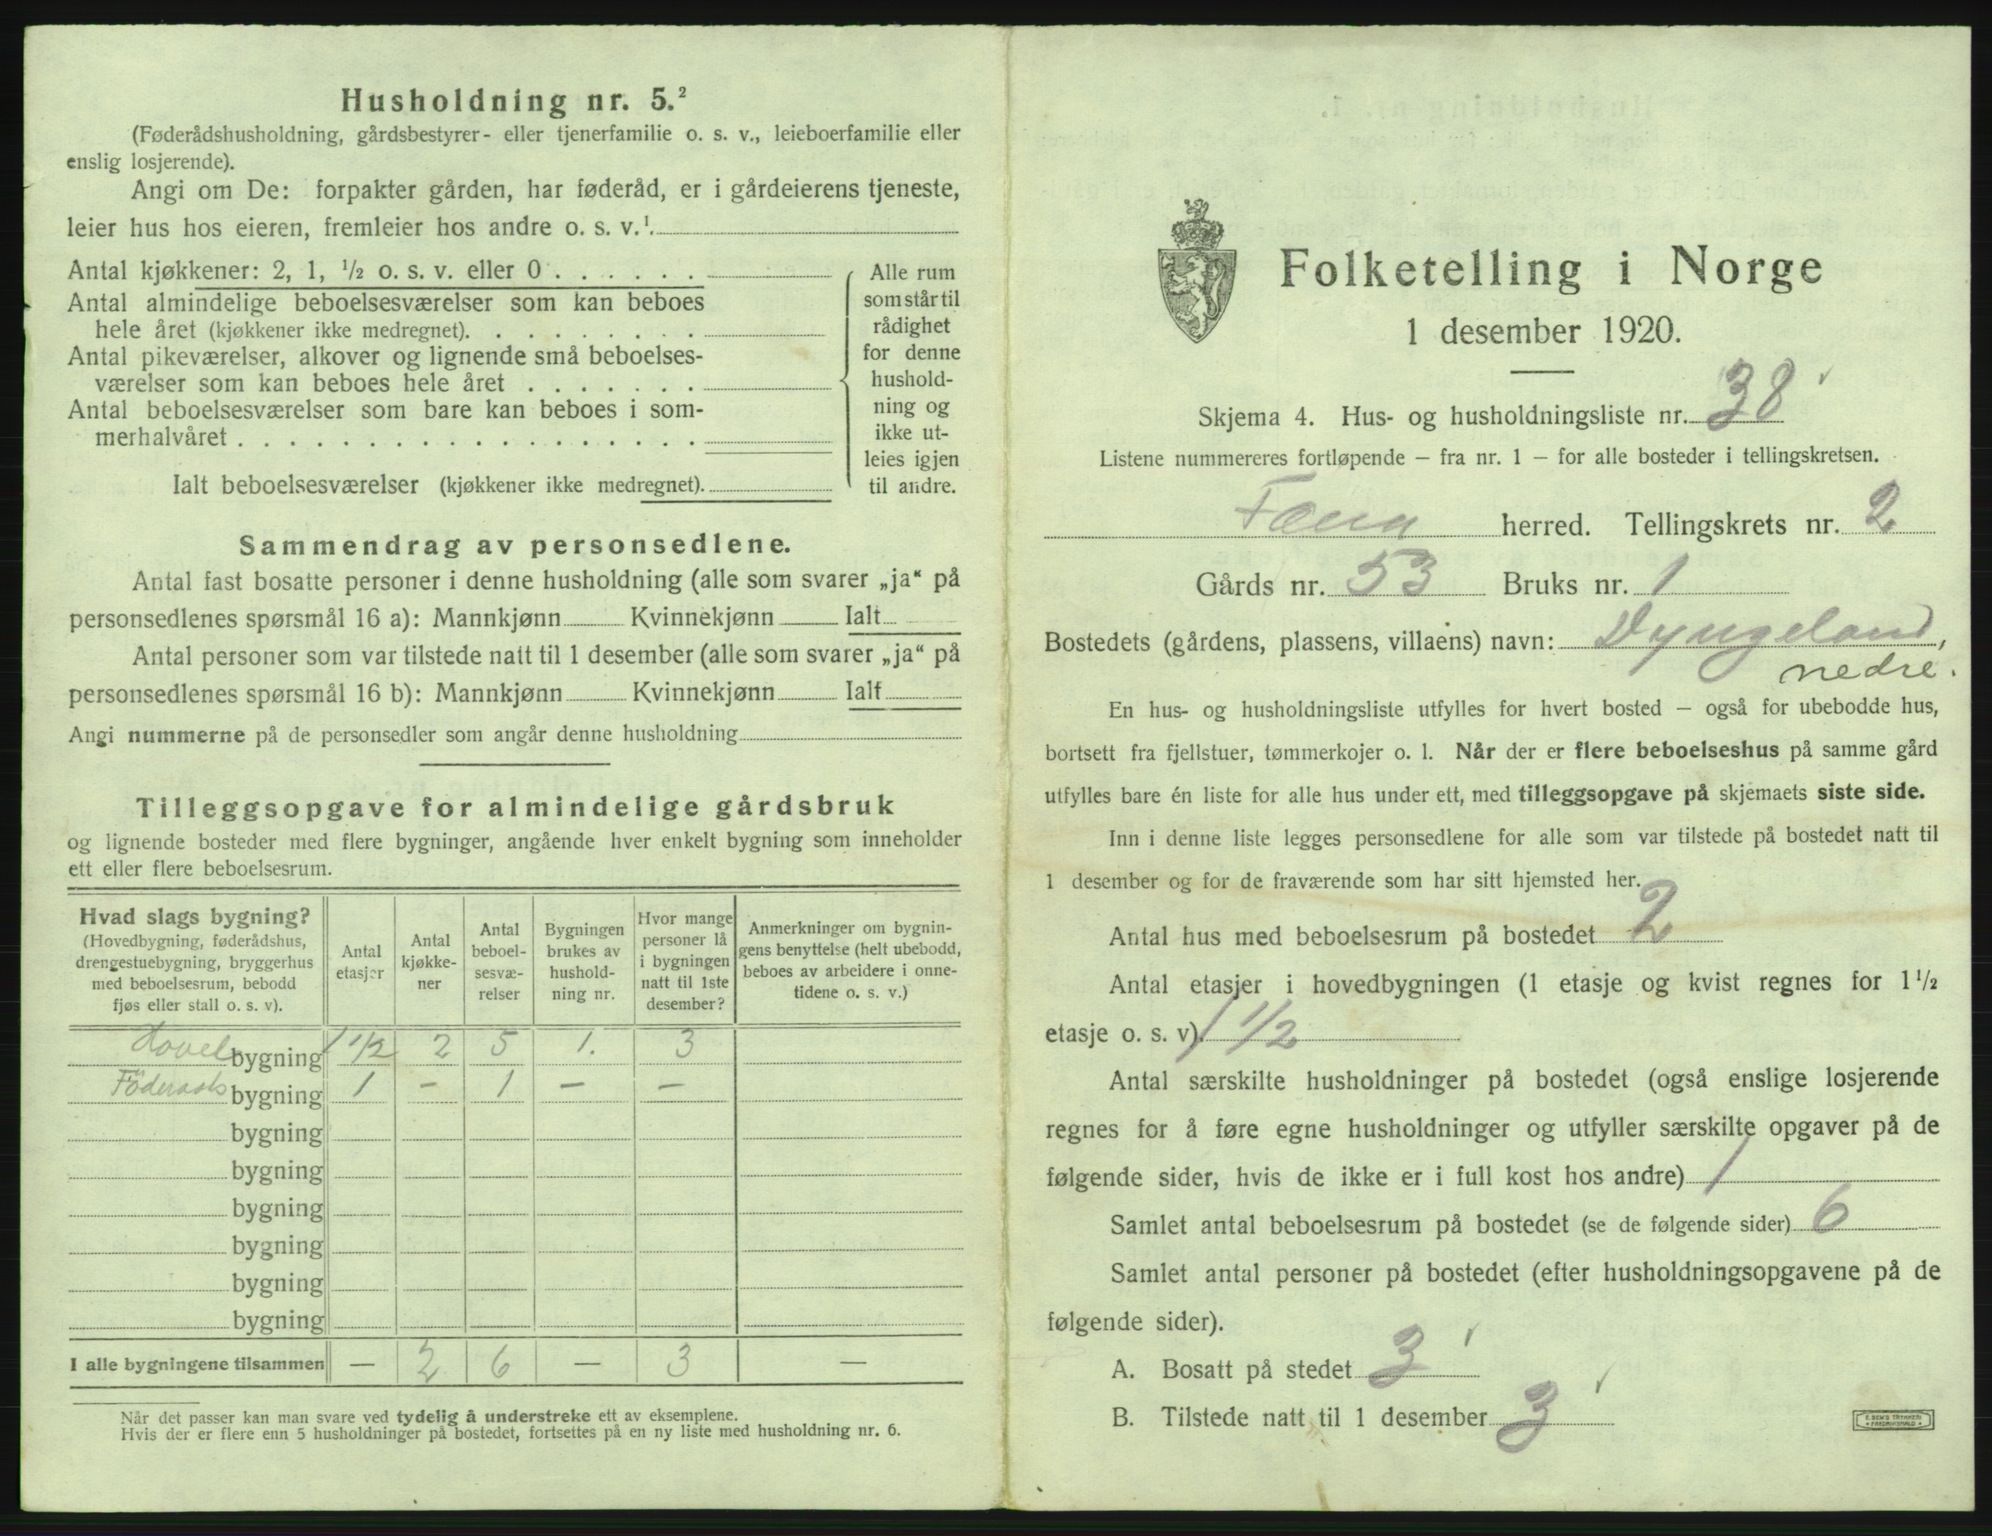 Husholdning nr. 5.²
(Føderådshusholdning, gårdsbestyrer- eller tjenerfamilie o. s. v., leieboerfamilie eller
enslig losjerende).
Angi om De: forpakter gården, har føderåd, er i gårdeierens tjeneste,
leier hus hos eieren, fremleier hos andre o. s. v.¹
Antal kjøkkener: 2, 1, ½ o. s. v. eller 0 . . . . . .
Antal almindelige beboelsesværelser som kan beboes
hele året (kjøkkener ikke medregnet). . . . . . . . .
Antal pikeværelser, alkover og lignende små beboelses-
værelser som kan beboes hele året . . . . . . .
Antal beboelsesværelser som bare kan beboes i som-
merhalvåret . . . . . . . . . . . . . . . . . .
Ialt beboelsesværelser (kjøkkener ikke medregnet).
Alle rum
som står til
rådighet
for denne
hushold-
ning og
ikke ut-
leies igjen
til andre.
Sammendrag av personsedlene.
Antal fast bosatte personer i denne husholdning (alle som svarer „ja“ på
personsedlenes spørsmål 16 a): Mannkjønn Kvinnekjønn Ialt
Antal personer som var tilstede natt til 1 desember (alle som svarer „ja“ på
personsedlenes spørsmål 16 b): Mannkjønn Kvinnekjønn Ialt
Angi nummerne på de personsedler som angår denne husholdning
Tilleggsopgave for almindelige gårdsbruk
og lignende bosteder med flere bygninger, angående hver enkelt bygning som inneholder
ett eller flere beboelsesrum.
Hvad slags bygning?
(Hovedbygning, føderådshus,
drengestuebygning, bryggerhus
med beboelsesrum, bebodd
fjøs eller stall o. s. v).
Antal
etasjer
Antal
kjøkke-
ner
Antal
beboel-
sesvæ-
relser
Bygningen
brukes av
hushold-
ning nr.
Hvor mange
personer lå
i bygningen
natt til 1ste
desember?
Anmerkninger om bygnin-
gens benyttelse (helt ubebodd,
beboes av arbeidere i onne-
tidene o. s. v.)
Hovel bygning 1 1/2 2 5 1. 3
Föderaads bygning 1 – 1 – –
bygning
bygning
bygning
bygning
bygning
bygning
I alle bygningene tilsammen — 2 6 — 3 —
Når det passer kan man svare ved tydelig å understreke ett av eksemplene.
Hvis der er flere enn 5 husholdninger på bostedet, fortsettes på en ny liste med husholdning nr. 6.
Folketelling i Norge
1 desember 1920.
Skjema 4. Hus- og husholdningsliste nr. 38
Listene nummereres fortløpende – fra nr. 1 – for alle bosteder i tellingskretsen.
Fana herred. Tellingskrets nr. 2
Gårds nr. 53 Bruks nr. 1
Bostedets (gårdens, plassens, villaens) navn: Dyngeland,
nedre.
En hus- og husholdningsliste utfylles for hvert bosted – også for ubebodde hus,
bortsett fra fjellstuer, tømmerkojer o. l. Når der er flere beboelseshus på samme gård
utfylles bare én liste for alle hus under ett, med tilleggsopgave på skjemaets siste side.
Inn i denne liste legges personsedlene for alle som var tilstede på bostedet natt til
1 desember og for de fraværende som har sitt hjemsted her.
Antal hus med beboelsesrum på bostedet 2
Antal etasjer i hovedbygningen (1 etasje og kvist regnes for 1½
etasje o. s. v). 1 1/2
Antal særskilte husholdninger på bostedet (også enslige losjerende
regnes for å føre egne husholdninger og utfyller særskilte opgaver på de
følgende sider, hvis de ikke er i full kost hos andre) 1
Samlet antal beboelsesrum på bostedet (se de følgende sider) 6
Samlet antal personer på bostedet (efter husholdningsopgavene på de
følgende sider).
A. Bosatt på stedet 3
B. Tilstede natt til 1 desember 3